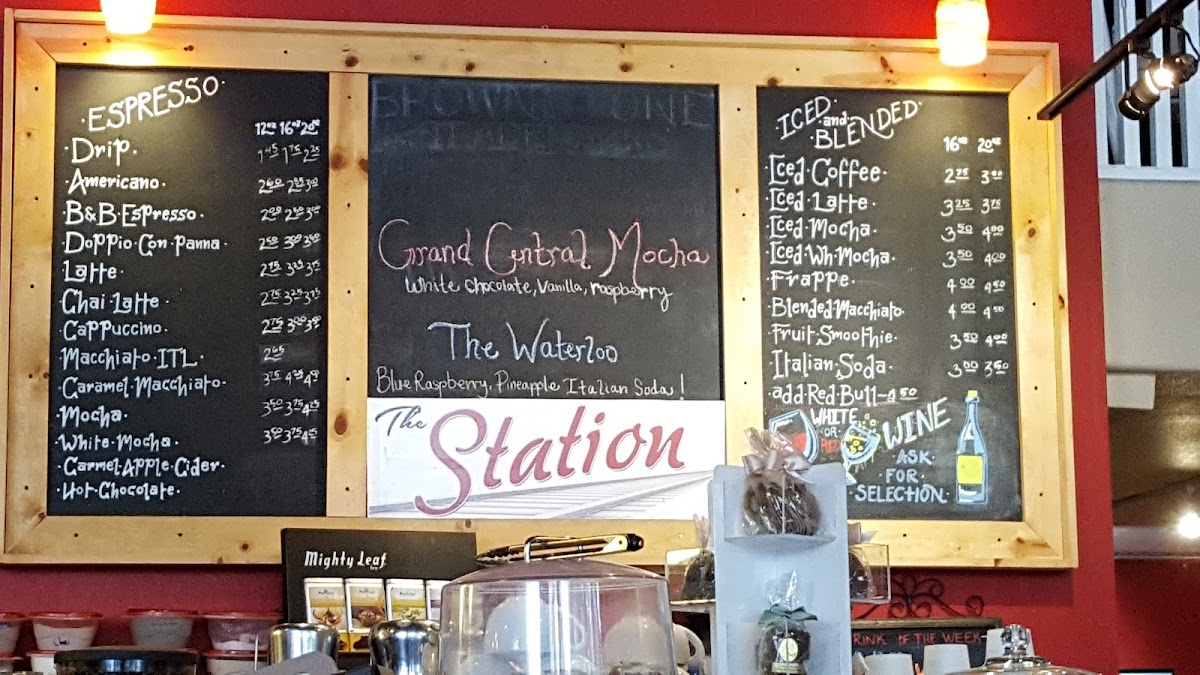 ESPRESSO
12oz 16oz 20oz
Drip. 1.45 1.75 2.25
Americano.
B&B Espresso. 2.00 2.50 3.00
Doppio Con Panna. 2.50 3.00 3.50
Latte. 2.75 3.25 3.75
Chai Latte. 2.75 3.25 3.75
Cappuccino. 2.75 3.00
Macchiato ITL. 2.65
Caramel Macchiato.
Mocha. 3.50 3.75 4.25
White Mocha. 3.50 3.75 4.25
Carmel Apple Cider.
Hot Chocolate.
Grand Central Mocha
White chocolate, Vanilla, raspberry
The Waterloo
Blue Raspberry, Pineapple Italian Soda!
The Station
ICED and BLENDED
16oz 20oz
Iced Coffee. 2.25 3.00
Iced Latte. 3.25 3.75
Iced Mocha. 3.50 4.00
Iced Wh. Mocha. 3.50 4.00
Frappe. 4.00 4.50
Blended Macchiato. 4.00 4.50
Fruit Smoothie. 3.50 4.00
Italian Soda. 3.00 3.50
add Red Bull- 4.50
WHITE
OR
RED
WINE
ASK
FOR
SELECTION
Mighty Leaf
DRINK OF THE WEEK